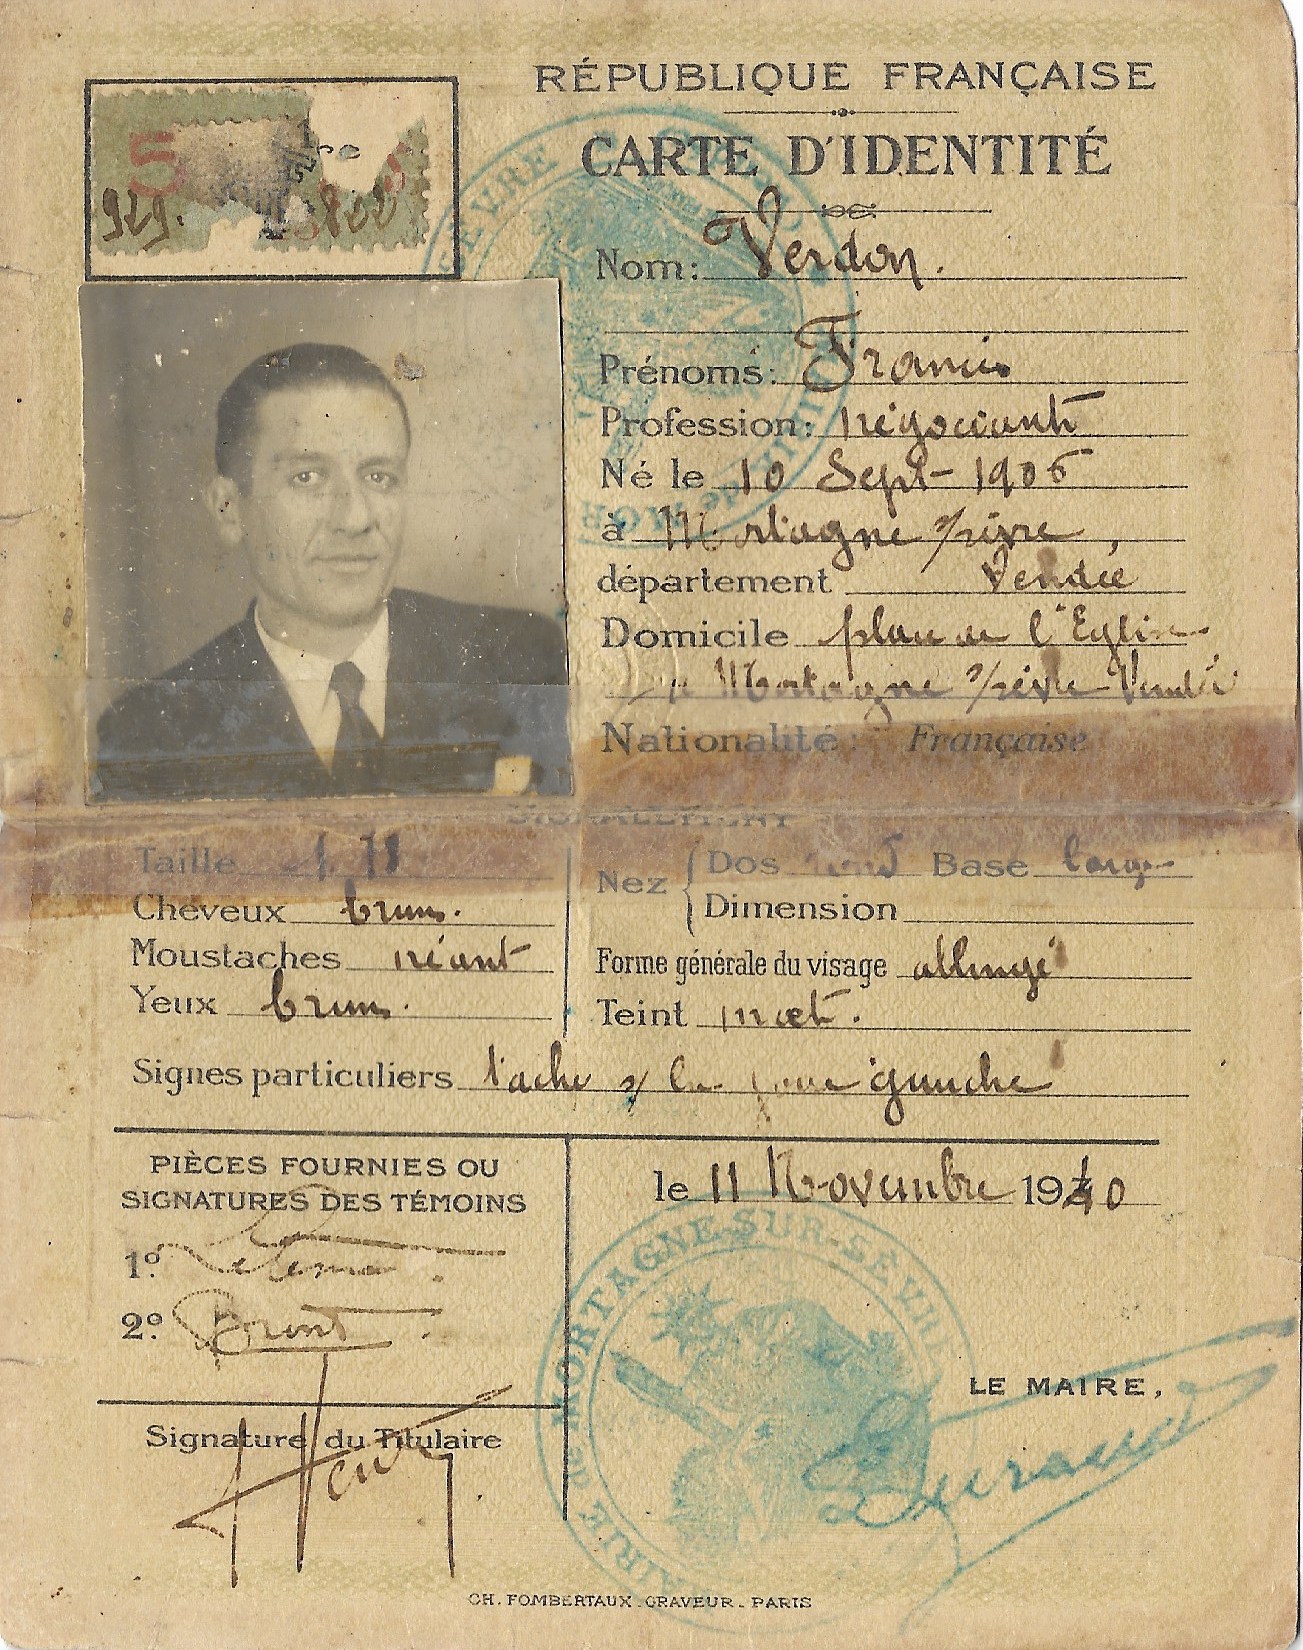 RÉPUBLIQUE FRANÇAISE
CARTE D'IDENTITÉ
5
929.
Nom: Verdon.
Prénoms: Francis
Profession: négociant
Né le 10 Sept- 1906
à Mortagne s/sèvre,
département Vendée
Domicile place de l'Eglise
Mortagne s/sèvre Vendée
Nationalité: Française
SIGNALEMENT
Taille 1,78
Cheveux bruns.
Moustaches néant
Yeux bruns.
Nez Dos Base large
Dimension
Forme générale du visage allongé
Teint mat.
Signes particuliers tache s/ la joue gauche
PIÈCES FOURNIES OU
SIGNATURES DES TÉMOINS
1º.
2º.
Signature du Titulaire
le 11 Novembre 1940
MAIRIE de MORTAGNE-SUR-SÈVRE
LE MAIRE,
CH. FOMBERTAUX. GRAVEUR. PARIS